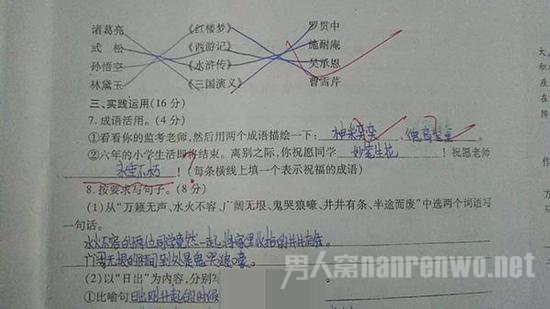 诸葛亮 《红楼梦》 罗贯中
武 松 《西游记》 施耐庵
孙悟空 《水浒传》 吴承恩
林黛玉 《三国演义》 曹雪芹
三、实践运用(16 分)
7. 成语活用。(4 分)
①看看你的监考老师,然后用两个成语描绘一下: 神采奕奕 、
②六年的小学生活即将结束。离别之际,你祝愿同学 妙笔生花 !祝愿老师
永垂不朽 ! (每条横线上填一个表示祝福的成语)
8. 按要求写句子。(8 分)
(1)从“万籁无声、水火不容、广阔无垠、鬼哭狼嚎、井井有条、半途而废”中选两个词语写
一句话。
水火不容的两位同学竟然一起 井井有条。
广阔无垠的田间到处是鬼哭狼嚎。
(2)以“日出”为内容,分别
①比喻句 日出刚升起的时候
大
积
座
在
阵
男人窝 nanrenwo.net